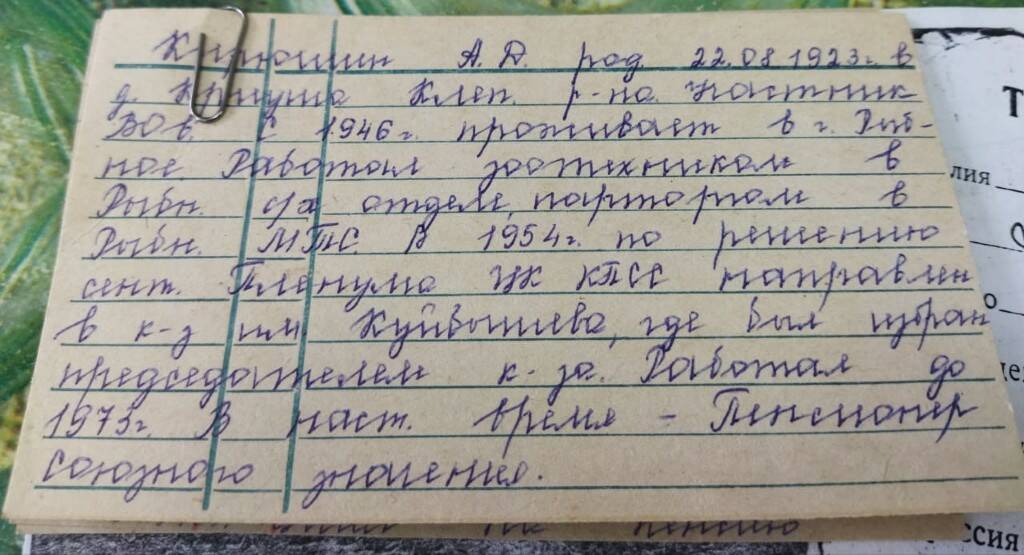 Кирюшин А.Д. род. 22.08 1923г. в
д. Криуша Клеп. р-на. Участник
ВОв. С 1946г. проживает в г. Рыб-
ное Работал зоотехником в
Рыбн. с/х отделе, парторгом в
Рыбн. МТС. В 1954г. по решению
сент. Пленума ЦК КПСС направлен
в к-з им Куйбышева, где был избран
председателем к-за. Работал до
1973г. В наст. время - Пенсионер
союзного значения.
на пенсию
Т
лия
о
ссия